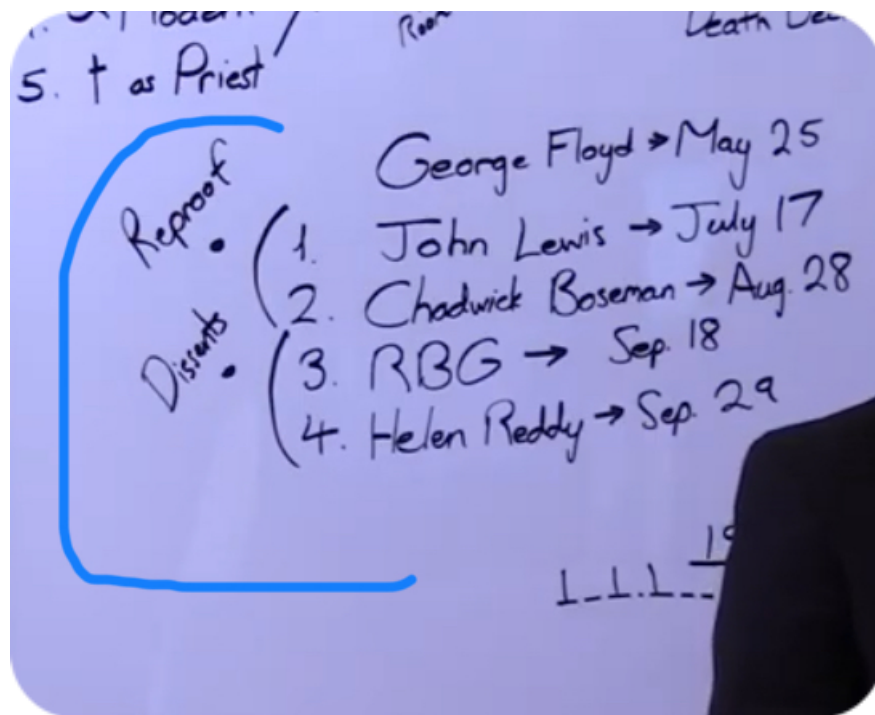 Room
Death
5. † as Priest
George Floyd → May 25
Reproof
1. John Lewis → July 17
2. Chadwick Boseman → Aug. 28
Dissents
3. RBG → Sep. 18
4. Helen Reddy → Sep. 29